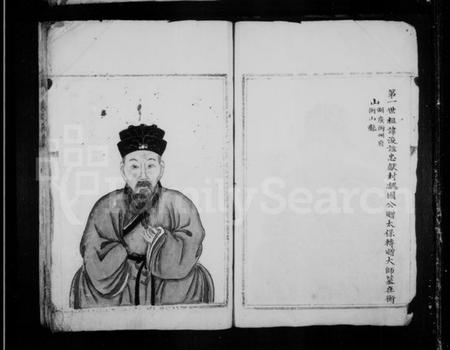 第一世祖諱浚諡忠獻封魏國公贈太保轉贈大師墓在衡
山
湖廣衡州府
衡山縣
FamilySearch